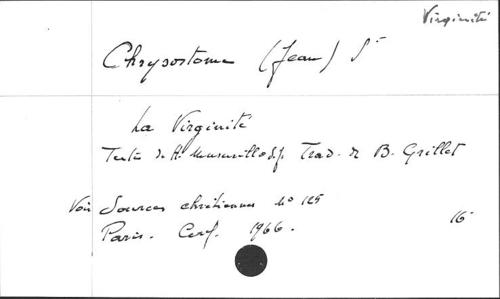 Virginité
Chrysostome (Jean) St
La Virginité
Texte de H. Musurillo s.j. Trad. de B. Grillet
Voir Sources chrétiennes No 125
Paris. Cerf. 1966. 16